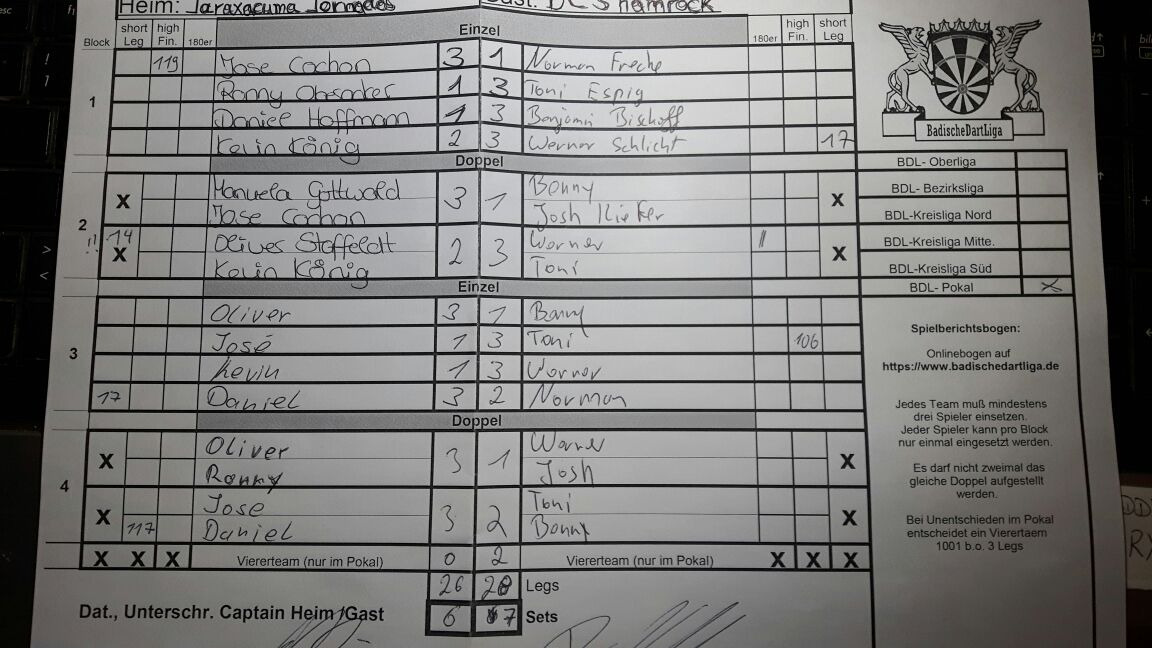 Heim: Taraxacuma Tornados Gast: DC Shamrock
Block short Leg high Fin. 180er Einzel 180er high Fin. short Leg
1
119 Jose Cochon 3 1 Norman Freche
Ronny Obsocker 1 3 Toni Espig
Daniel Hoffmann 1 3 Benjamin Bischoff
Kevin König 2 3 Werner Schlicht 17
Doppel
2
X Manuela Gottwald 3 1 Bonny X
Jose Cochon Josh Kieker
!! 14 X Oliver Staffeldt 2 3 Werner I X
Kevin König Toni
Einzel
3
Oliver 3 1 Bonny
José 1 3 Toni 106
Kevin 1 3 Werner
17 Daniel 3 2 Norman
Doppel
4
X Oliver 3 1 Werner X
Ronny Josh
X Jose 3 2 Toni X
117 Daniel Bonny
X X X Viererteam (nur im Pokal) 0 2 Viererteam (nur im Pokal) X X X
26 28 Legs
Dat., Unterschr. Captain Heim / Gast 6 7 Sets
BadischeDartLiga
BDL- Oberliga
BDL- Bezirksliga
BDL-Kreisliga Nord
BDL-Kreisliga Mitte.
BDL-Kreisliga Süd
BDL- Pokal X
Spielberichtsbogen:
Onlinebogen auf
https://www.badischedartliga.de
Jedes Team muß mindestens
drei Spieler einsetzen.
Jeder Spieler kann pro Block
nur einmal eingesetzt werden.
Es darf nicht zweimal das
gleiche Doppel aufgestellt
werden.
Bei Unentschieden im Pokal
entscheidet ein Vierertaem
1001 b.o. 3 Legs